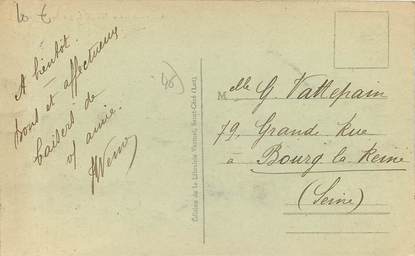 10 €
A bientôt.
bons et affectueux
baisers de
amie.
(46)
Editions de la Librairie Vertuel, Saint-Céré (Lot).
Melle G. Vattepain
79, Grande Rue
à Bourg la Reine
(Seine)